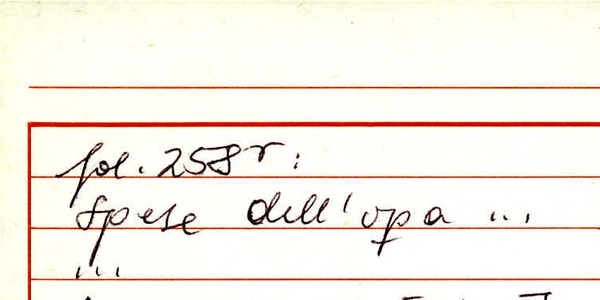 fol. 258r:
Spese dell'opa ...
...